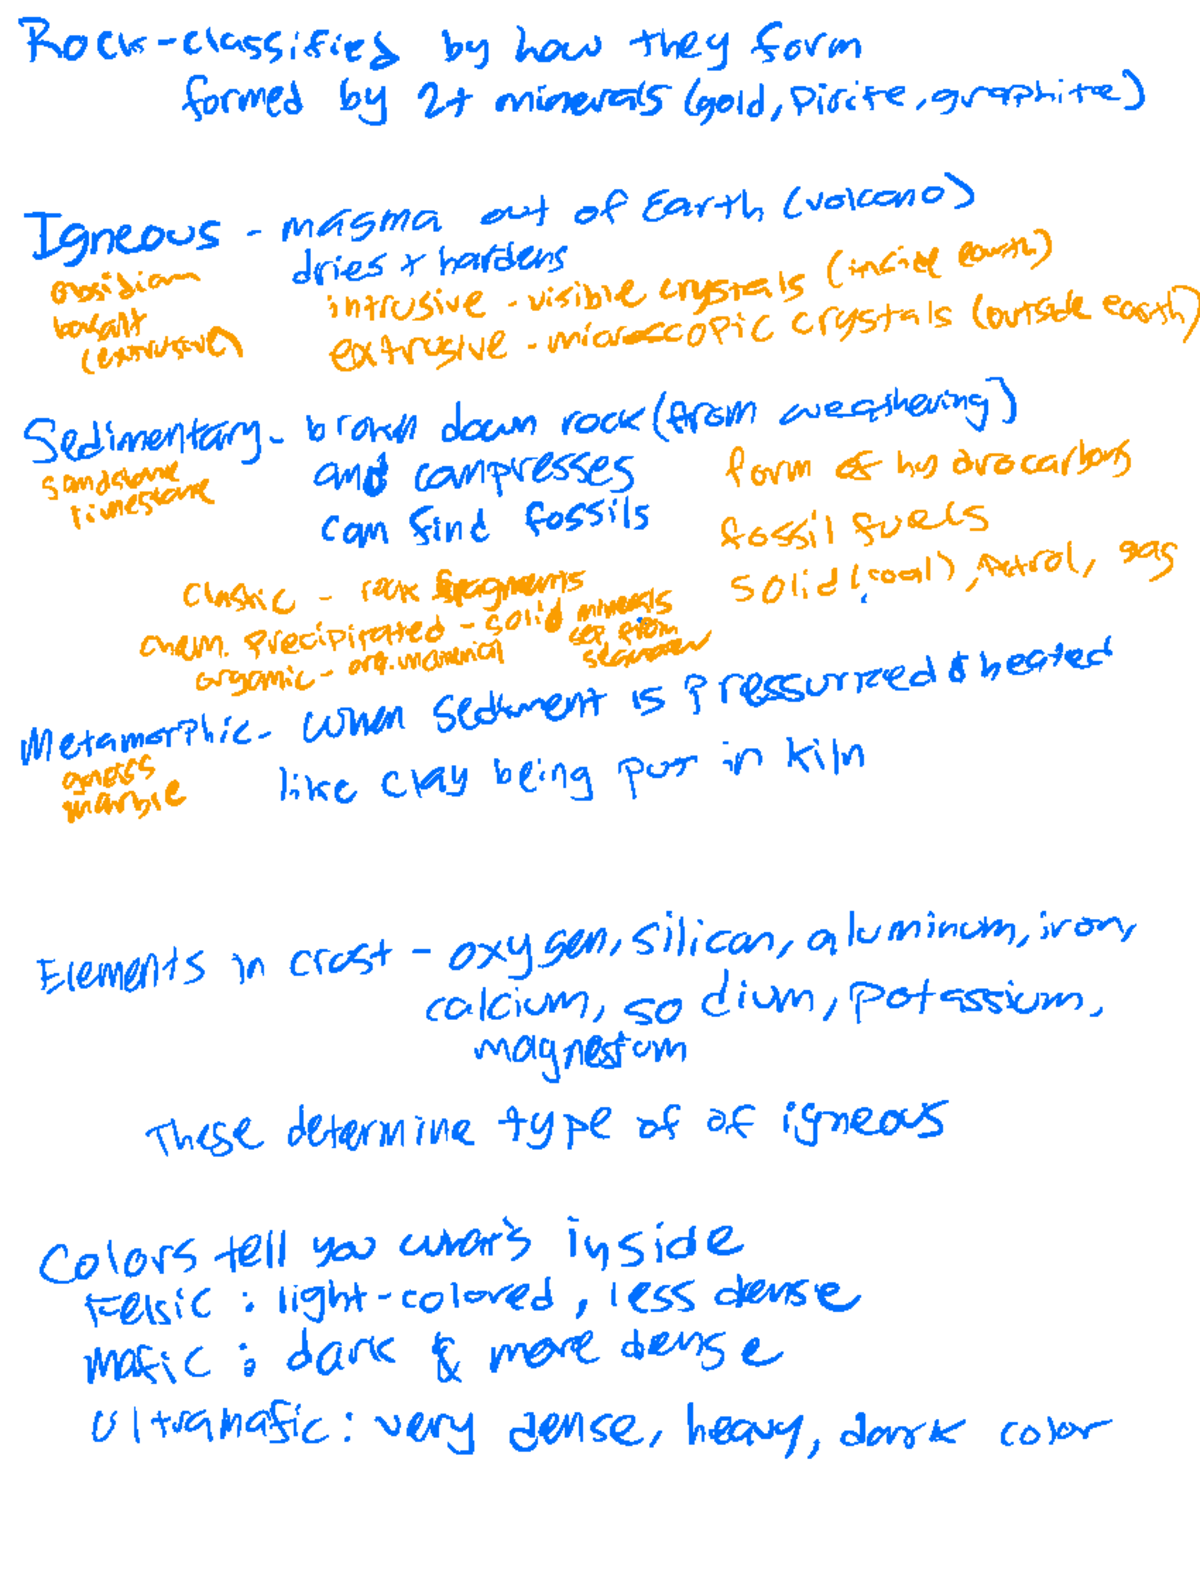 Rock-classified by how they form
formed by 2+ minerals (gold, Pirite, graphite)
Igneous - magma out of Earth (volcano)
dries + hardens
obsidian
basalt
(extrusive)
intrusive - visible crystals (inside earth)
extrusive - microscopic crystals (outside earth)
Sedimentary - broken down rock (from weathering)
and compresses
can find fossils
sandstone
limestone
form of hydrocarbons
fossil fuels
solid (coal), petrol, gas
Clastic - rock fragments
chem. precipitated - solid minerals
sep from
seawater
organic - org. material
Metamorphic - when sediment is pressurized & heated
like clay being put in kiln
gneiss
marble
Elements in crust - oxygen, silican, aluminum, iron,
calcium, sodium, potassium,
magnesium
These determine type of of igneous
Colors tell you what's inside
Felsic : light-colored, less dense
Mafic : dark & more dense
Ultramafic : very dense, heavy, dark color